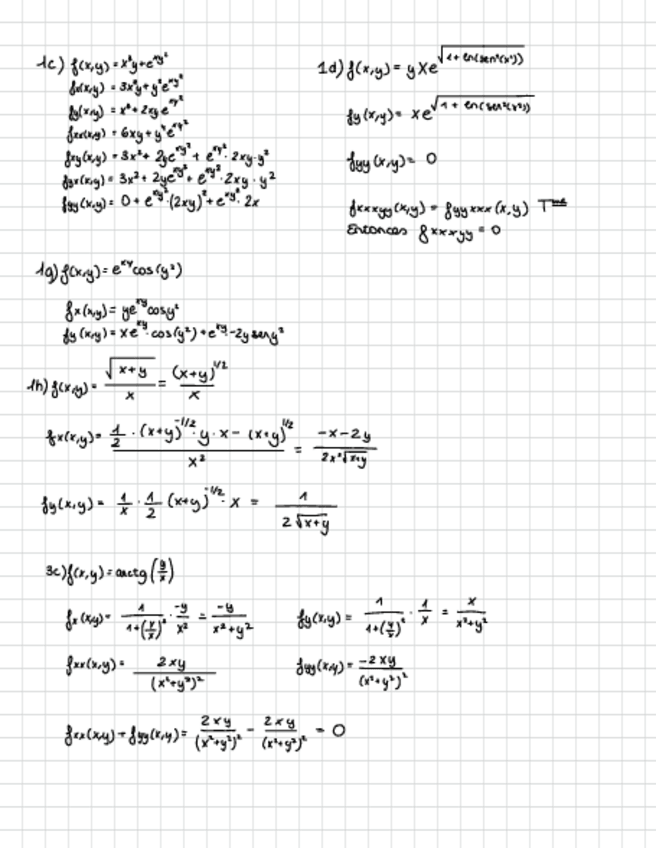 1c) f(x,y) = x³y + e^(xy²)
fx(x,y) = 3x²y + y²e^(xy²)
fy(x,y) = x³ + 2xye^(xy²)
fxx(x,y) = 6xy + y⁴e^(xy²)
fxy(x,y) = 3x² + 2ye^(xy²) + e^(xy²) · 2xy · y²
fyx(x,y) = 3x² + 2ye^(xy²) + e^(xy²) · 2xy · y²
fyy(x,y) = 0 + e^(xy²) · (2xy)² + e^(xy²) · 2x
1d) f(x,y) = yxe^(√(1 + ln(sen²(x³))))
fy(x,y) = xe^(√(1 + ln(sen²(x³))))
fyy(x,y) = 0
fxxxyy(x,y) = fyyxxx(x,y)
Entonces fxxxyy = 0
f(x,y) = e^(xy) cos(y²)
fx(x,y) = ye^(xy) cos y²
fy(x,y) = xe^(xy) · cos(y²) + e^(xy) · -2y sen y²
1h) f(x,y) = √(x+y)/x = (x+y)^(1/2)/x
fx(x,y) = (1/2 · (x+y)^(-1/2) · y · x - (x+y)^(1/2))/x² = (-x-2y)/(2x²√(x+y))
fy(x,y) = 1/x · 1/2 (x+y)^(-1/2) · x = 1/(2√(x+y))
3c) f(x,y) = arctg(y/x)
fx(x,y) = 1/(1+(y/x)²) · -y/x² = -y/(x²+y²)
fy(x,y) = 1/(1+(y/x)²) · 1/x = x/(x²+y²)
fxx(x,y) = 2xy/(x²+y²)²
fyy(x,y) = -2xy/(x²+y²)²
fxx(x,y) + fyy(x,y) = 2xy/(x²+y²)² - 2xy/(x²+y²)² = 0